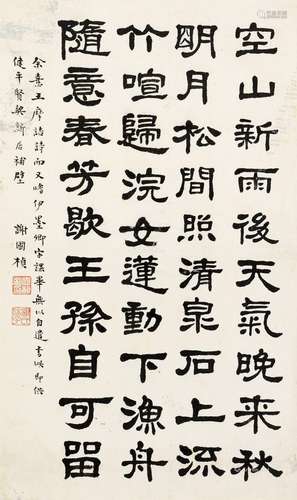 空山新雨後天氣晚來秋
明月松間照清泉石上流
竹喧歸浣女蓮動下漁舟
隨意春芳歇王孫自可留
余喜王摩詰詩而又嗜伊墨卿字課畢無以自遣書此即供
健年賢契新居補壁
謝國楨